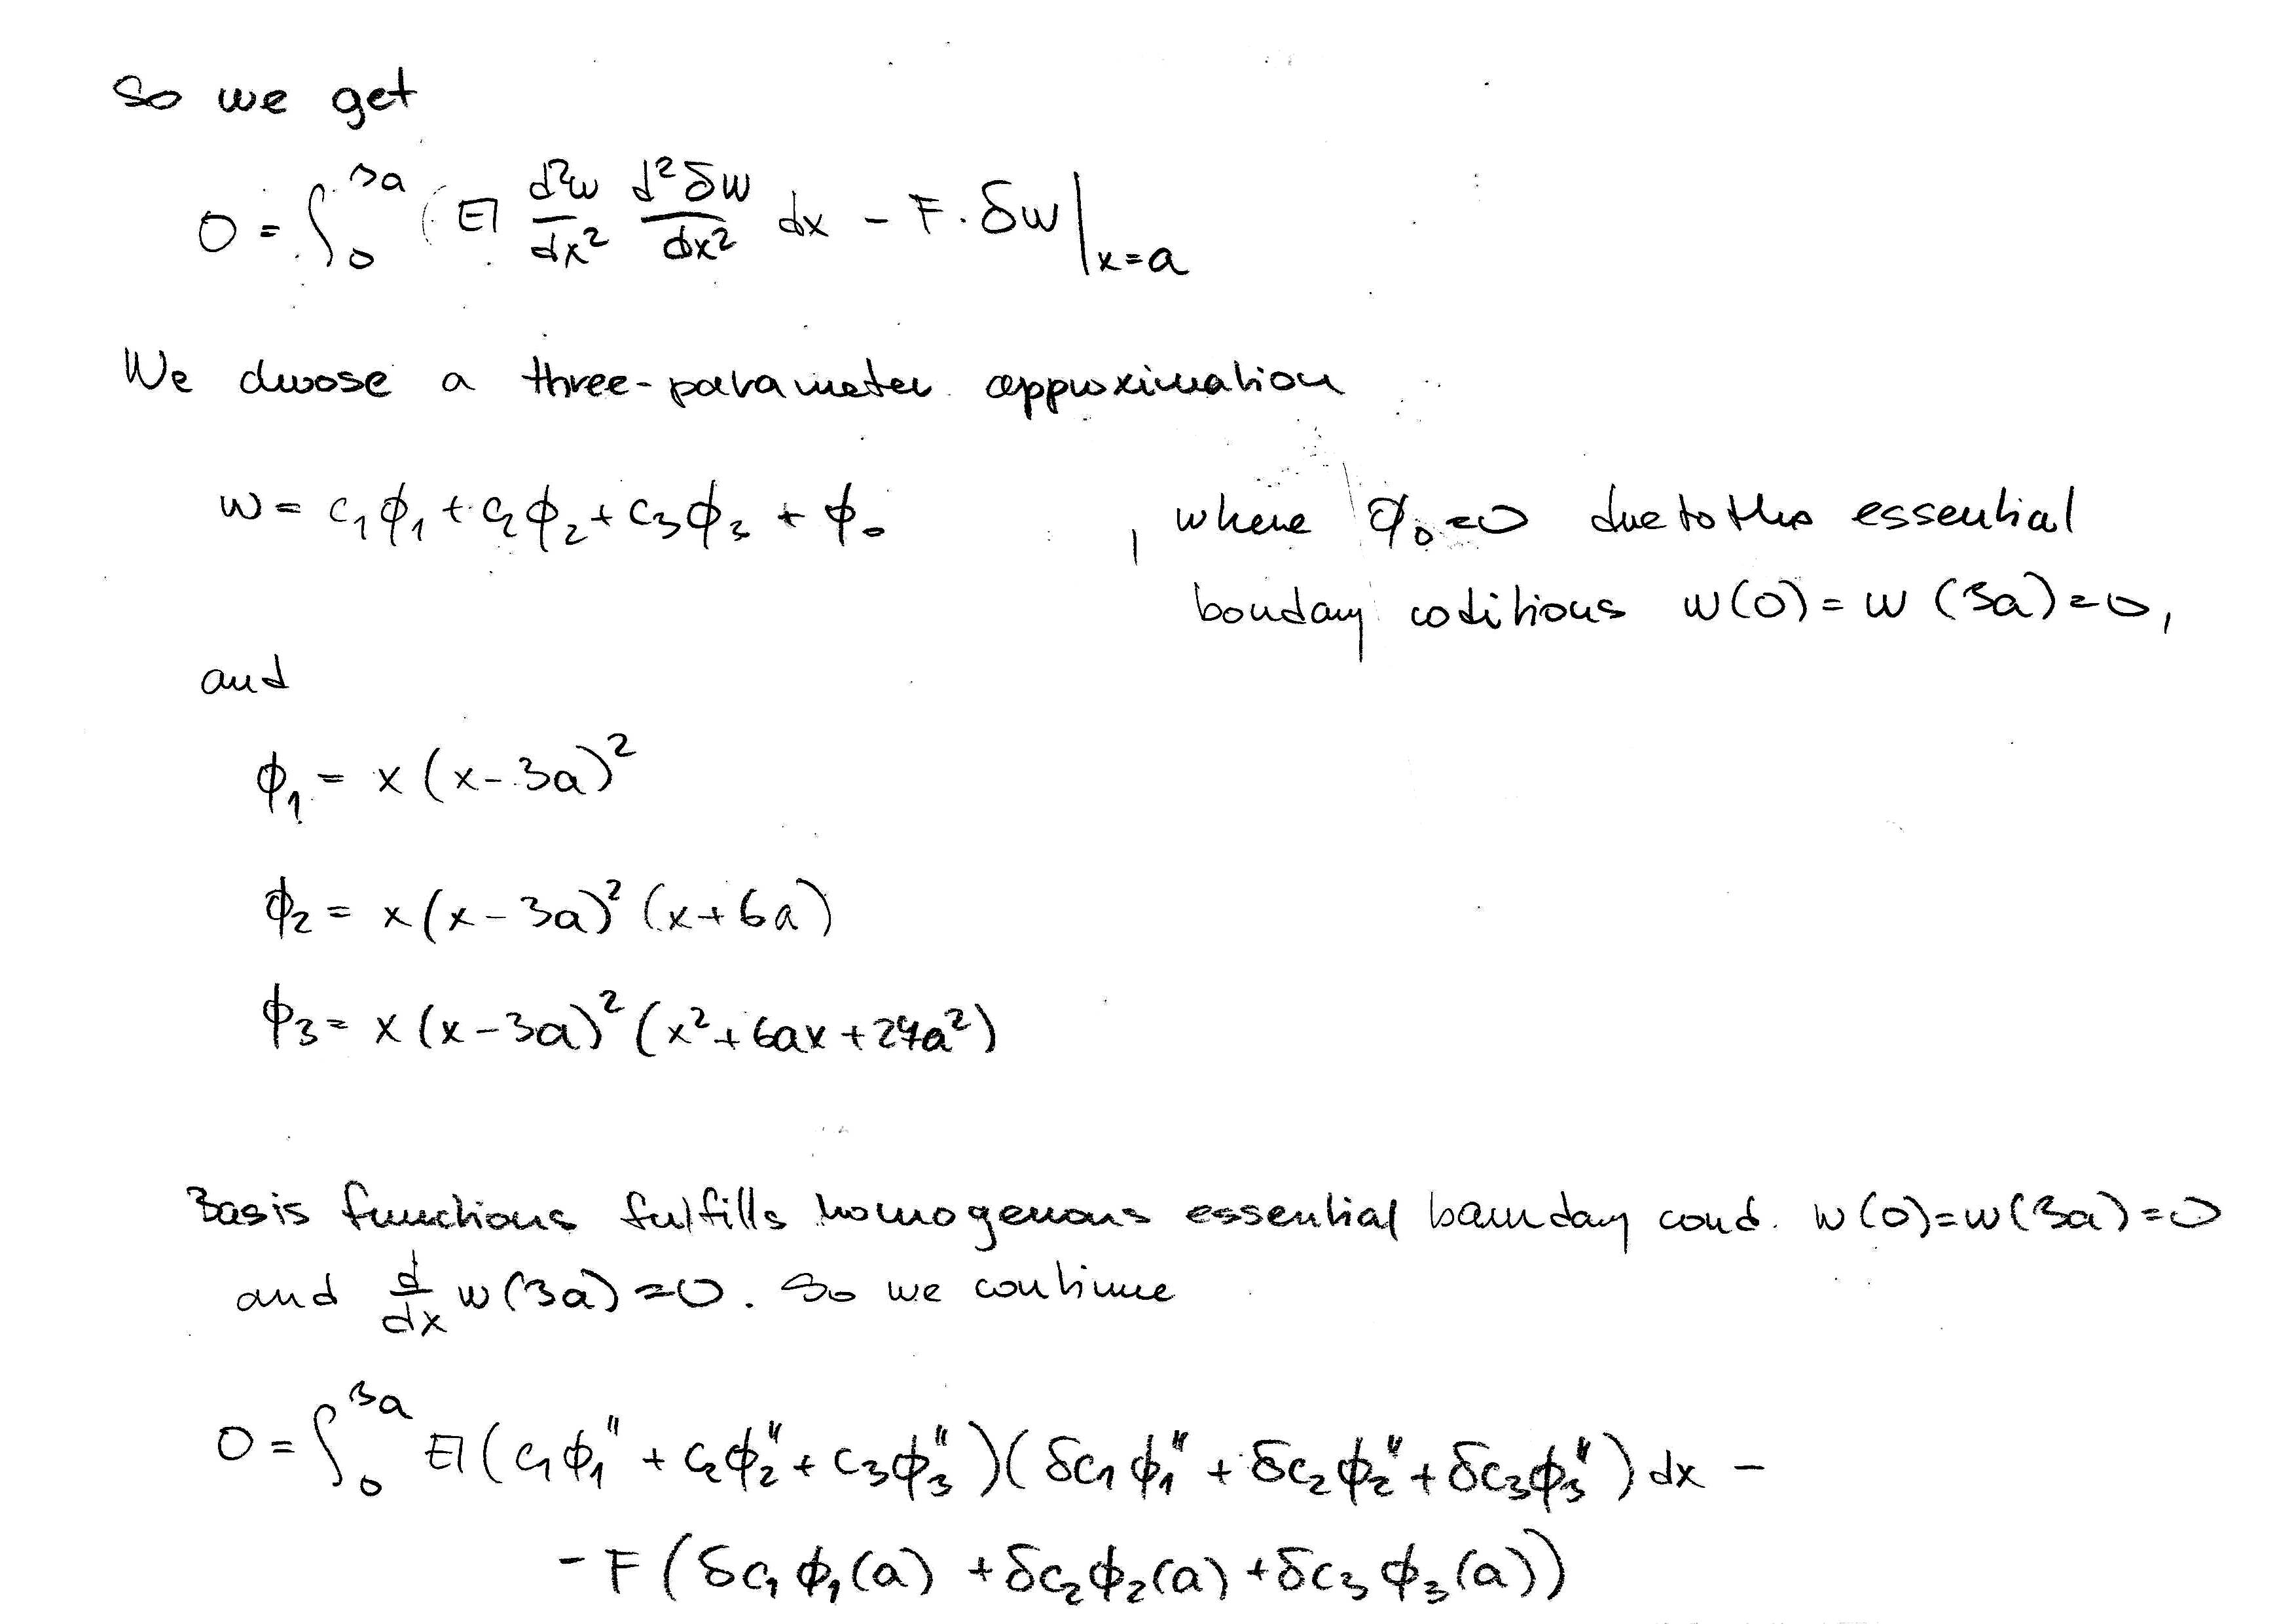 So we get
0 = ∫₀³ᵃ ( EI d²w/dx² d²δw/dx² dx - F · δw |ₓ₌ₐ
We choose a three-parameter approximation
w = c₁ϕ₁ + c₂ϕ₂ + c₃ϕ₃ + ϕ₀ , where ϕ₀ = 0 due to the essential
boundary coditions w(0) = w(3a) = 0,
and
ϕ₁ = x(x-3a)²
ϕ₂ = x(x-3a)²(x+6a)
ϕ₃ = x(x-3a)²(x²+6ax+27a²)
Basis functions fulfills homogenous essential boundary cond. w(0)=w(3a)=0
and d/dx w(3a) = 0. So we continue
0 = ∫₀³ᵃ EI(c₁ϕ₁'' + c₂ϕ₂'' + c₃ϕ₃'')(δc₁ϕ₁'' + δc₂ϕ₂'' + δc₃ϕ₃'') dx -
- F(δc₁ϕ₁(a) + δc₂ϕ₂(a) + δc₃ϕ₃(a))